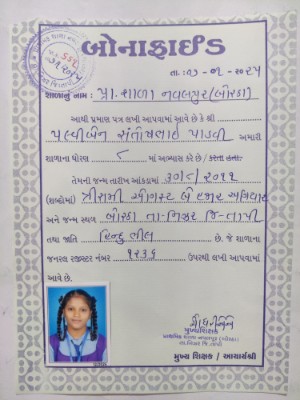 બોનાફાઈડ
તા. : ૦૩-૦૧-૨૦૨૫
શાળાનું નામ : પ્રા. શાળા નવલપુર (બોરદા)
આથી પ્રમાણ પત્ર આપવામાં આવે છે કે શ્રી
પલ્વીબેન સંતોષભાઇ પાડવી અમારી
શાળાના ધોરણ ૮ માં અભ્યાસ કરે છે / કરતા હતા
તેમની જન્મ તારીખ આંકડામાં ૩૦/૮/૨૦૧૧
(શબ્દોમાં) ત્રીસમી ઓગસ્ટ બે હજાર અગિયાર
અને જન્મ સ્થળ બોરદા તા-નિઝર જિ-તાપી
તથા જાતિ હિન્દુ ભીલ છે. જે શાળાના
જનરલ રજીસ્ટર નંબર ૧૨૩૬ ઉપરથી લખી આપવામાં
આવે છે.
મુખ્ય શિક્ષક / આચાર્યશ્રી